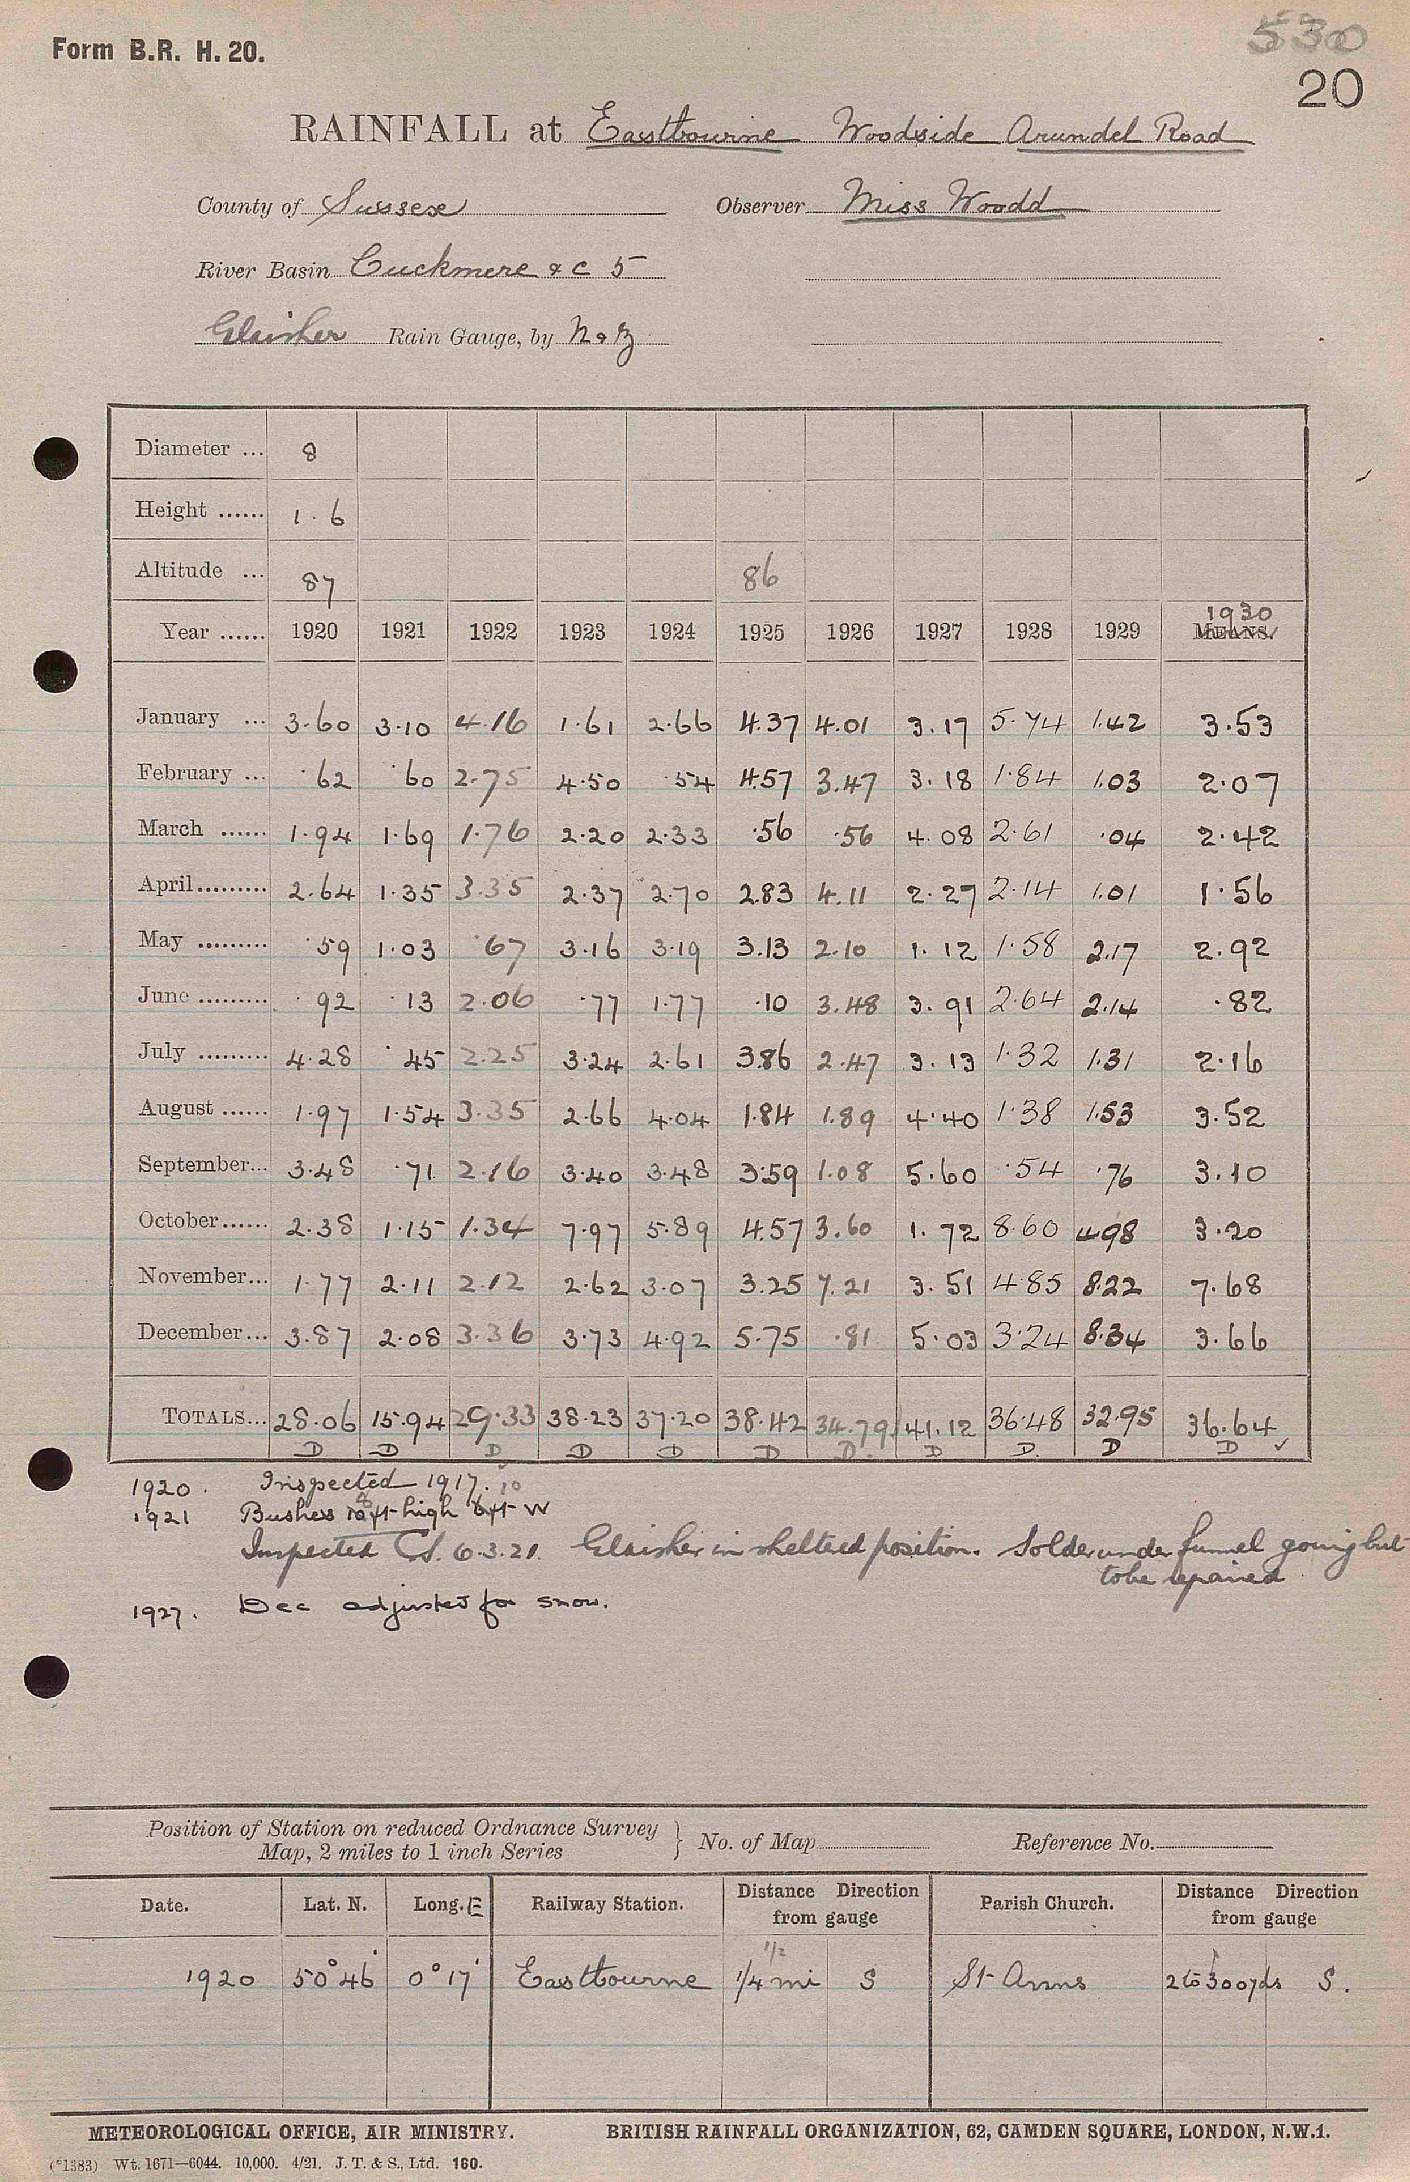 Form B.R. H. 20.
530
20
RAINFALL at Eastbourne Woodside Arundel Road
County of Sussex Observer Miss Woodd
River Basin Cuckmere & c 5
Glaisher Rain Gauge, by N & Z
Diameter ... 8
Height ...... 1 . 6
Altitude ... 87 86
1930
Year ...... 1920 1921 1922 1923 1924 1925 1926 1927 1928 1929 MEANS.
January ... 3.60 3.10 4.16 1.61 2.66 4.37 4.01 3.17 5.74 1.42 3.53
February ... .62 .60 2.75 4.50 .54 4.57 3.47 3.18 1.84 1.03 2.07
March ...... 1.94 1.69 1.76 2.20 2.33 .56 .56 4.08 2.61 .04 2.42
April......... 2.64 1.35 3.35 2.37 2.70 2.83 4.11 2.27 2.14 1.01 1.56
May ......... .59 1.03 .67 3.16 3.19 3.13 2.10 1.12 1.58 2.17 2.92
June ......... .92 .13 2.06 .77 1.77 .10 3.48 3.91 2.64 2.14 .82
July ......... 4.28 .45 2.25 3.24 2.61 3.86 2.47 3.13 1.32 1.31 2.16
August ...... 1.97 1.54 3.35 2.66 4.04 1.84 1.89 4.40 1.38 1.53 3.52
September... 3.48 .71 2.16 3.40 3.48 3.59 1.08 5.60 .54 .76 3.10
October...... 2.38 1.15 1.34 7.97 5.89 4.57 3.60 1.72 8.60 4.98 3.20
November... 1.77 2.11 2.12 2.62 3.07 3.25 7.21 3.51 4.85 8.22 7.68
December... 3.87 2.08 3.36 3.73 4.92 5.75 .81 5.03 3.24 8.34 3.66
TOTALS... 28.06 15.94 29.33 38.23 37.20 38.42 34.79 41.12 36.48 32.95 36.64
D D D D D D D D D D D ✓
1920. Inspected 1917.
1921 Bushes ft high 6ft W
Inspected 6.3.21. Glaisher in sheltered position. Solder under funnel going but
to be repaired
1927. Dec adjusted for snow.
Position of Station on reduced Ordnance Survey
Map, 2 miles to 1 inch Series } No. of Map Reference No.
Date. Lat. N. Long. E Railway Station. Distance Direction from gauge Parish Church. Distance Direction from gauge
1/2
1920 50° 46' 0° 17' Eastbourne 1/4 mi S St Anns 2 to 300 yds S.
METEOROLOGICAL OFFICE, AIR MINISTRY. BRITISH RAINFALL ORGANIZATION, 62, CAMDEN SQUARE, LONDON, N.W.1.
(*1383) Wt. 1671—6044. 10,000. 4/21. J. T. & S., Ltd. 160.